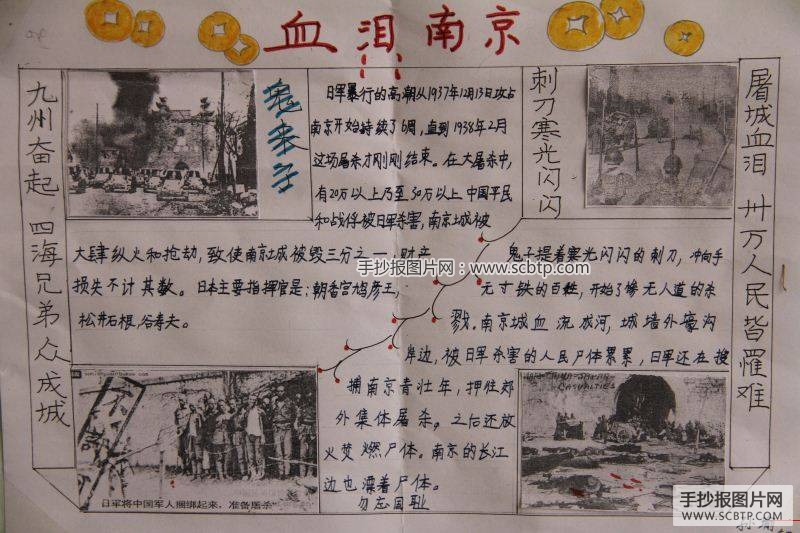 血泪南京
九州奋起 四海兄弟众成城
鬼来子
日军暴行的高潮从1937年12月13日攻占
南京开始持续了6周，直到1938年2月
这场屠杀才刚刚结束。在大屠杀中，
有20万以上乃至30万以上中国平民
和战俘被日军杀害，南京城被
大肆纵火和抢劫，致使南京城被毁三分之一，财产
损失不计其数。日本主要指挥官是：朝香宫鸠彦王，
松井石根，谷寿夫。
刺刀寒光闪闪
屠城血泪 卅万人民皆罹难
手抄报图片网：www.scbtp.com
鬼子提着寒光闪闪的刺刀，冲向手
无寸铁的百姓，开始了惨无人道的杀
戮。南京城血流成河，城墙外壕沟
岸边，被日军杀害的人民尸体累累，日军还在搜
捕南京青壮年，押往郊
外集体屠杀。之后还放
火焚燃尸体。南京的长江
边也漂着尸体。
勿忘国耻
日军将中国军人捆绑起来，准备屠杀
CASUALTIES
手抄报图片网
WWW.SCBTP.COM